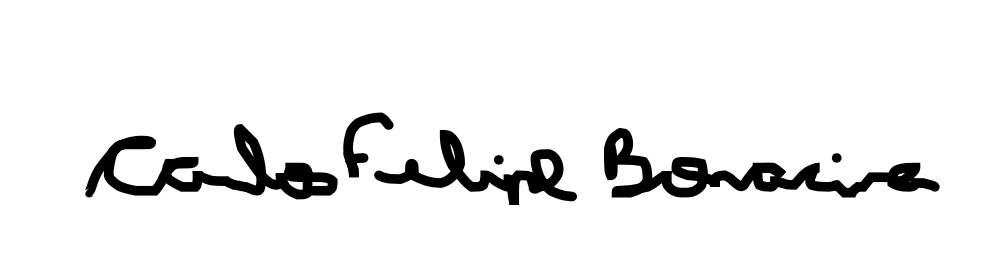 Carlos Felipe Bonacina